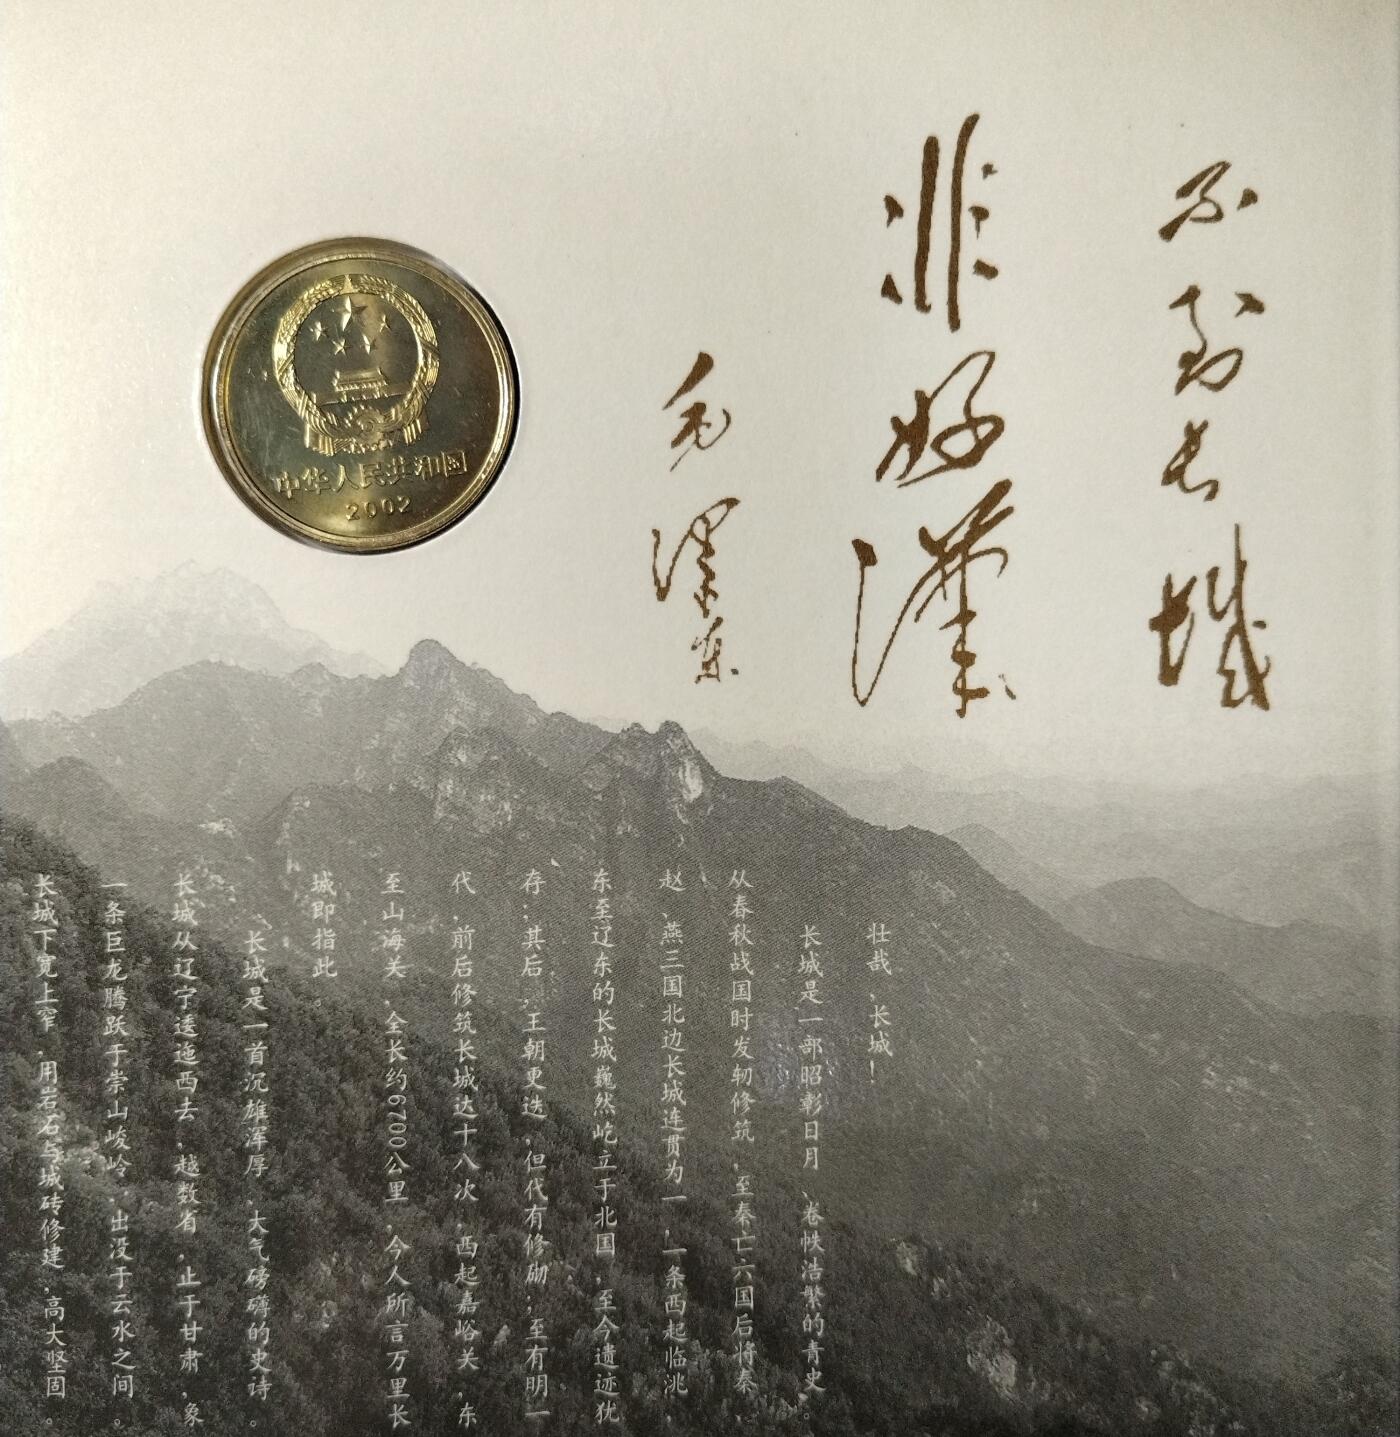 不到长城
非好漢
毛澤东
中华人民共和国
2002
壮哉，长城！
长城是一部昭彰日月、卷帙浩繁的青史。
从春秋战国时发轫修筑，至秦亡六国后将秦、
赵、燕三国北边长城连贯为一，一条西起临洮，
东至辽东的长城巍然屹立于北国，至今遗迹犹
存；其后，王朝更迭，但代有修砌；至有明一
代，前后修筑长城达十八次，西起嘉峪关，东
至山海关，全长约6700公里，今人所言万里长
城即指此。
长城是一首沉雄浑厚、大气磅礴的史诗。
长城从辽宁逶迤西去，越数省，止于甘肃，象
一条巨龙腾跃于崇山峻岭，出没于云水之间。
长城下宽上窄，用岩石与城砖修建，高大坚固。